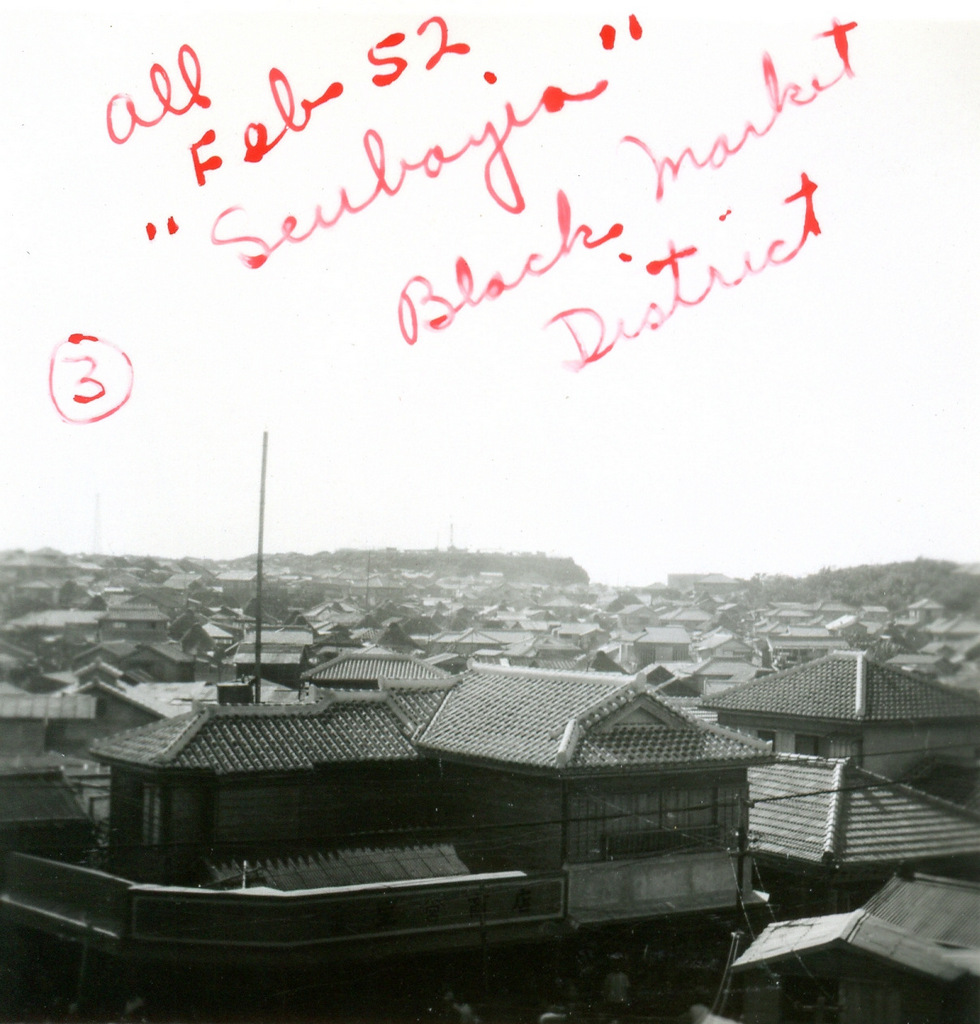 All
Feb 52
"Seubayia"
Black Market
District
3
商店